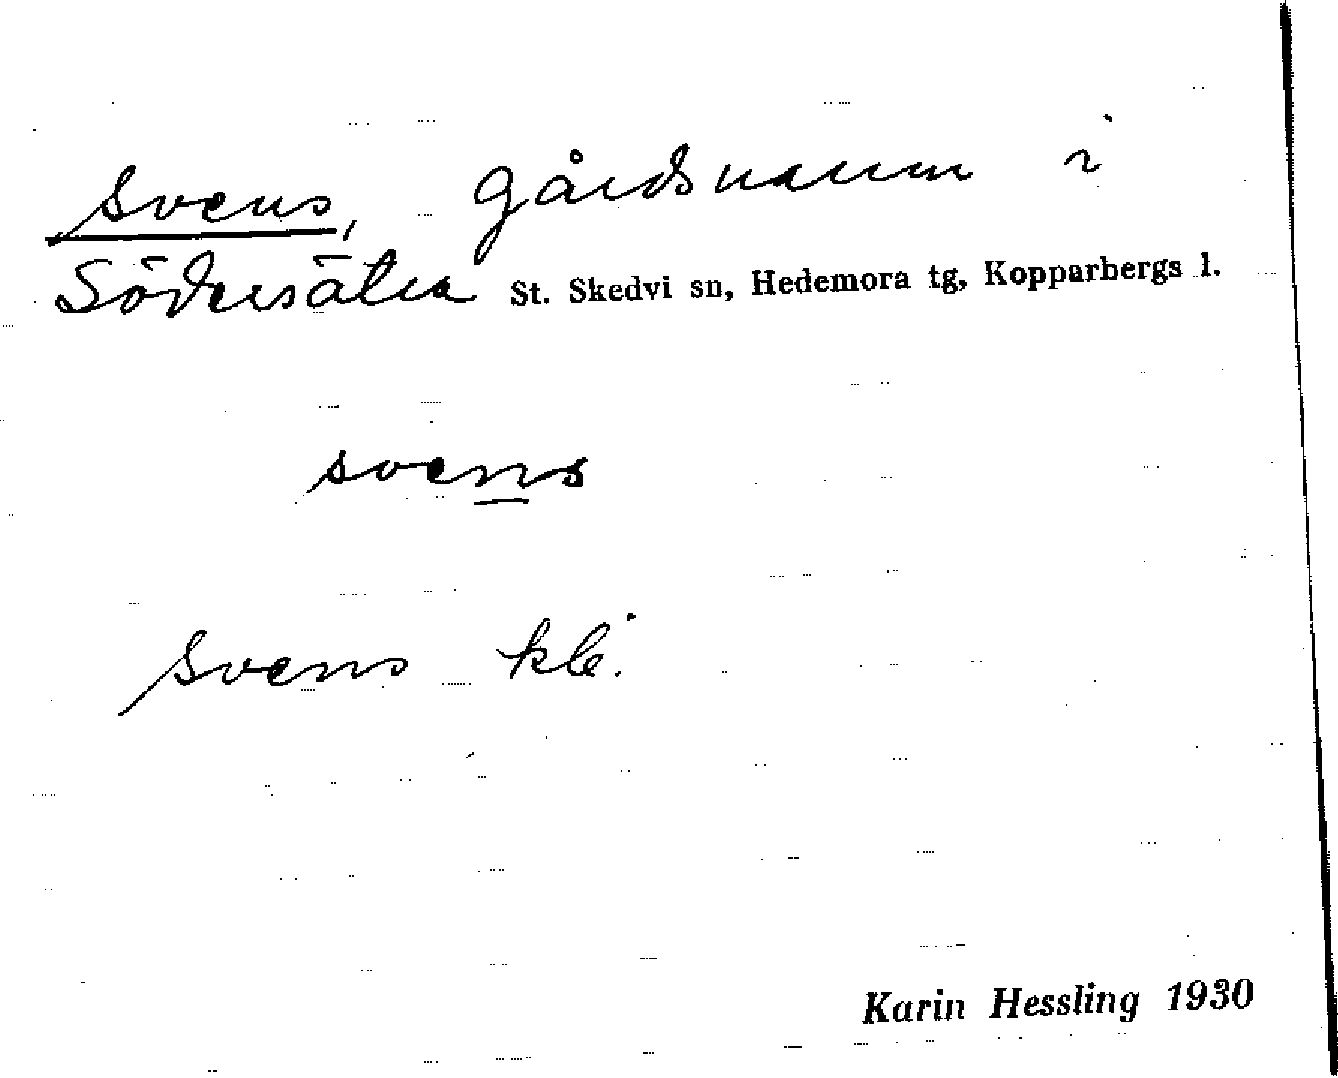 Svens, gårdsnamn i
Södersätra St. Skedvi sn, Hedemora tg, Kopparbergs l.
svens
Svens
Karin Hessling 1930